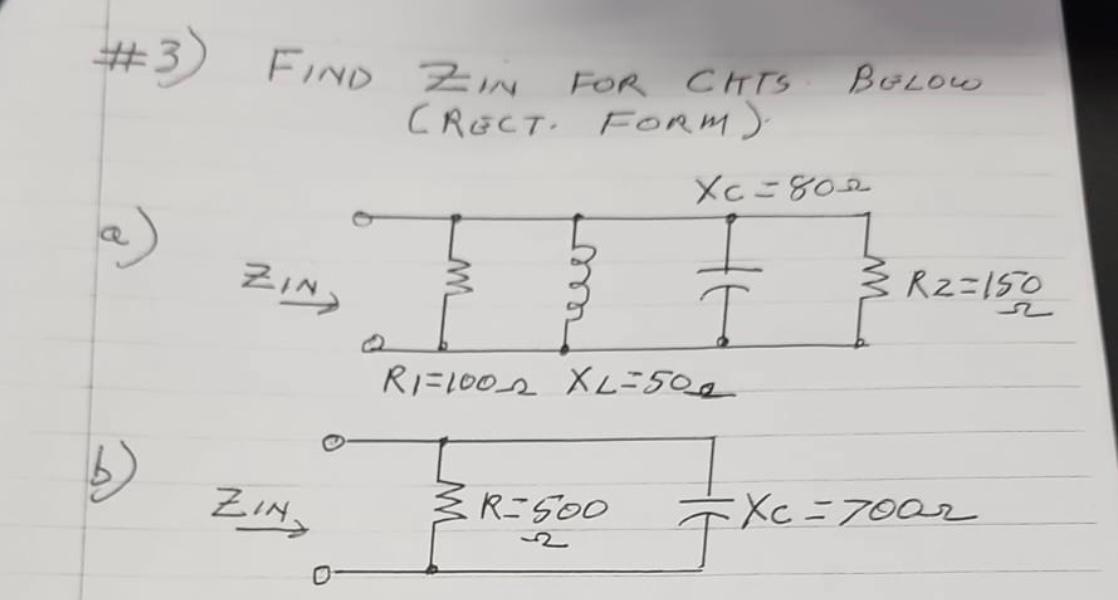 #3) FIND ZIN FOR CKTS. BELOW
(RECT. FORM).
XC=80Ω
a)
ZIN
R2=150
Ω
R1=100Ω XL=50Ω
b)
ZIN
R=500
Ω
XC=700Ω